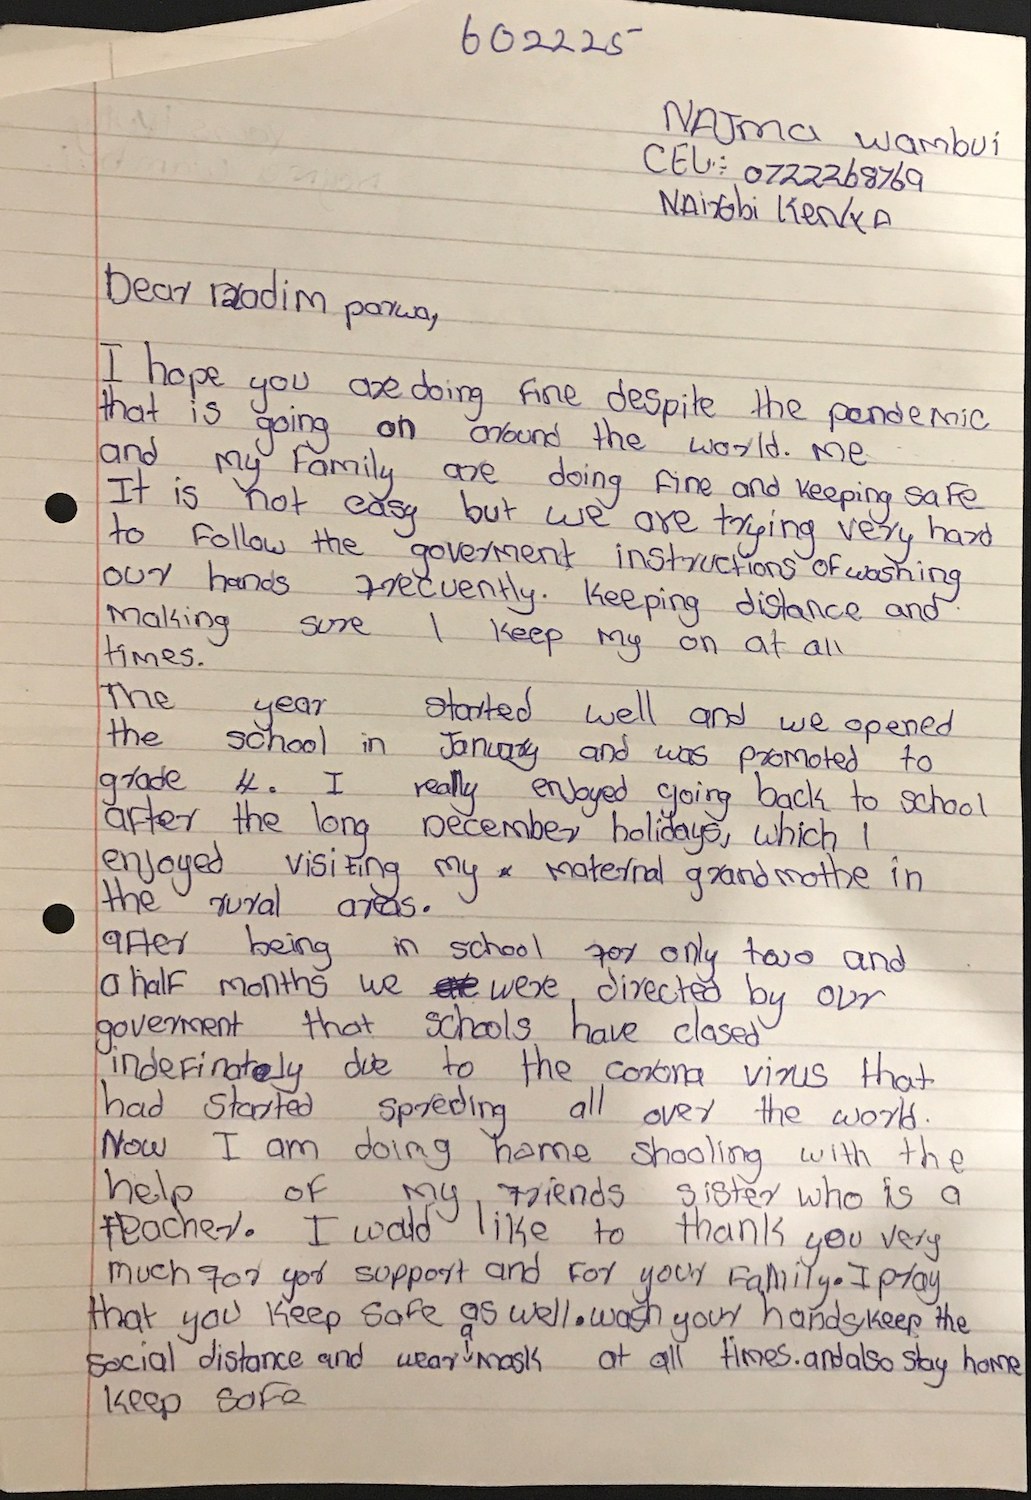 602225
NAJma wambui
CELL: 0722268769
NAirobi KenyA
Dear radim parwa,
I hope you are doing fine despite the pandemic
that is going on around the world. Me
and my family are doing fine and keeping safe
It is not easy but we are trying very hard
to follow the goverment instructions of washing
our hands frecuently. Keeping distance and
making sure I keep my on at all
times.
The year started well and we opened
the school in January and was promoted to
grade 4. I really enjoyed going back to school
after the long December holidays, which I
enjoyed visiting my maternal grandmothe in
the rural areas.
after being in school for only two and
a half months we were directed by our
goverment that schools have closed
indefinately due to the corona virus that
had started spreding all over the world.
Now I am doing home shooling with the
help of my friends sister who is a
teacher. I would like to thank you very
much for your support and for your family. I pray
that you keep safe as well. wash your hands, keep the
social distance and wear a mask at all times. and also stay home
keep safe